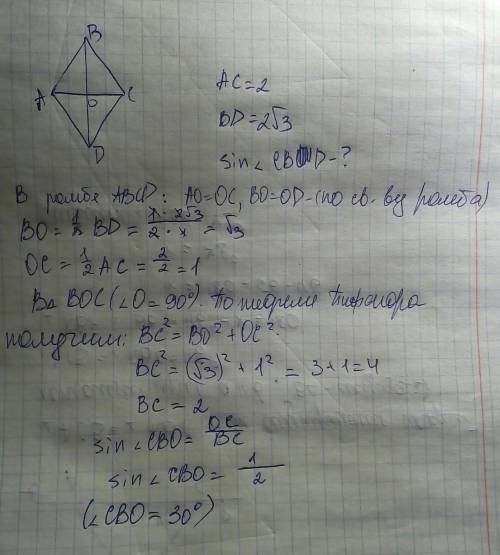 B
A
O
C
D
AC=2
BD=2√3
sin∠CBD-?
В ромбе ABCD: AO=OC, BO=OD-(по св. ву ромба)
BO=1/2 BD= 1·2√3/2·1 = √3
OC=1/2 AC=2/2=1
В△ BOC (∠O=90°). По теореме Пифагора
получим: BC²=BO²+OC².
BC²=(√3)²+1²=3+1=4
BC=2
sin∠CBO=OC/BC
sin∠CBO=1/2
(∠CBO=30°)